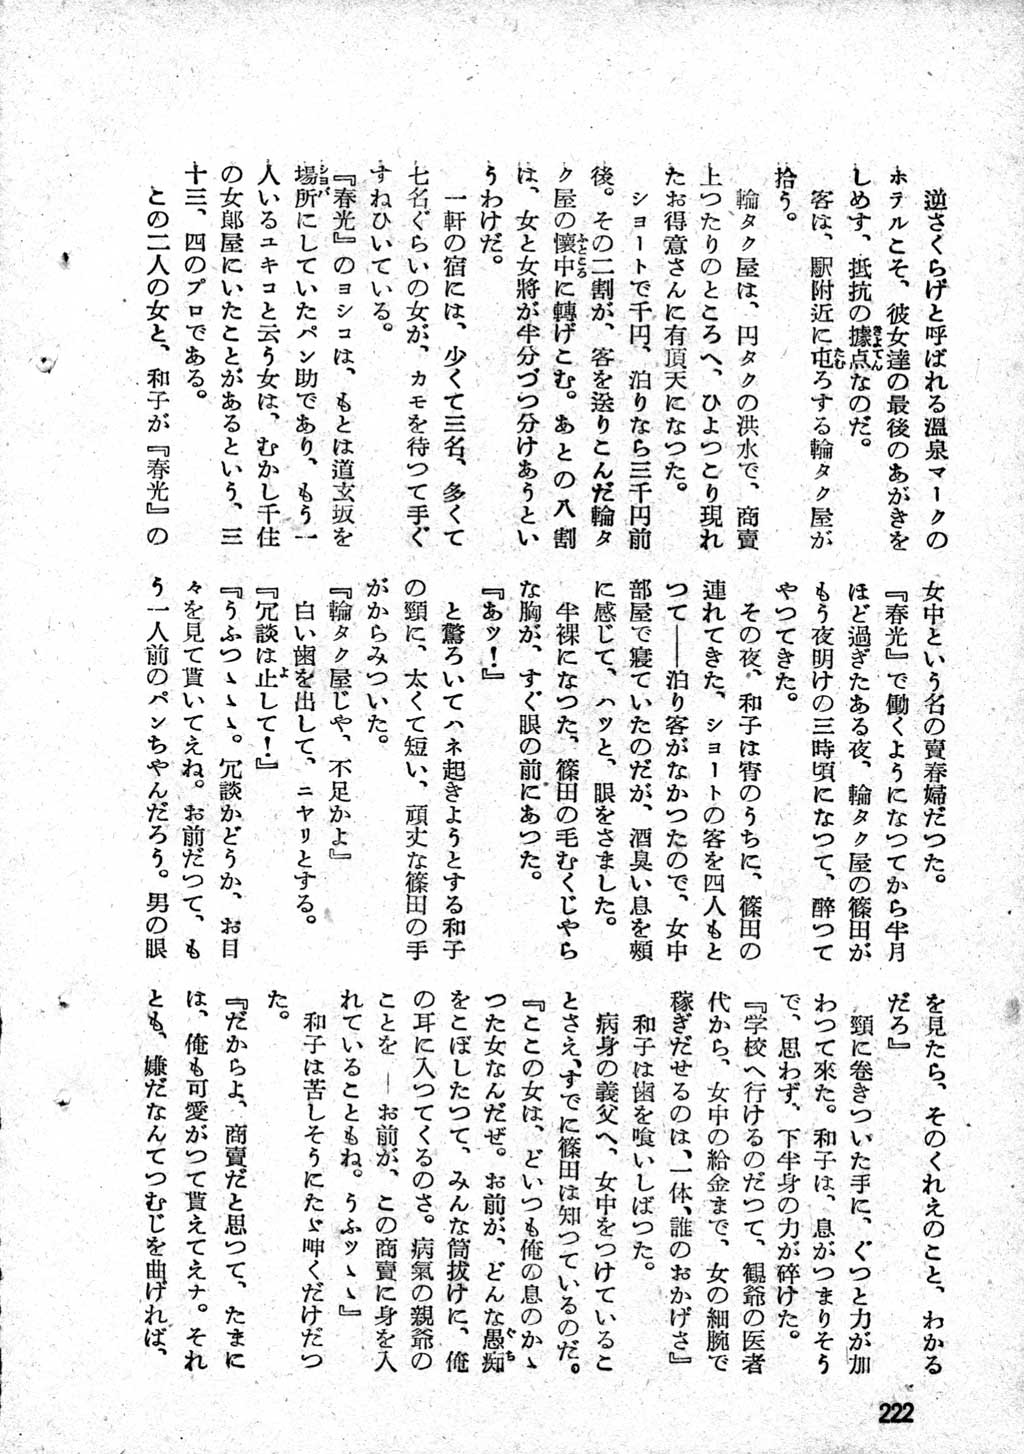 逆さくらげと呼ばれる溫泉マークの
ホテルこそ、彼女達の最後のあがきを
しめす、抵抗の據点なのだ。
客は、駅附近に屯ろする輪タク屋が
拾う。
輪タク屋は、円タクの洪水で、商賣
上つたりのところへ、ひよつこり現れ
たお得意さんに有頂天になつた。
ショートで千円、泊りなら三千円前
後。その二割が、客を送りこんだ輪タ
ク屋の懐中に轉げこむ。あとの八割
は、女と女將が半分づつ分けあうとい
うわけだ。
一軒の宿には、少くて三名、多くて
七名ぐらいの女が、カモを待つて手ぐ
すねひいている。
『春光』のヨシコは、もとは道玄坂を
場所にしていたパン助であり、もう一
人いるユキコと云う女は、むかし千住
の女郎屋にいたことがあるという、三
十三、四のプロである。
この二人の女と、和子が『春光』の
女中という名の賣春婦だつた。
『春光』で働くようになつてから半月
ほど過ぎたある夜、輪タク屋の篠田が
もう夜明けの三時頃になつて、醉つて
やつてきた。
その夜、和子は宵のうちに、篠田の
連れてきた、ショートの客を四人もと
つて——泊り客がなかつたので、女中
部屋で寢ていたのだが、酒臭い息を頰
に感じて、ハッと、眼をさました。
半裸になつた、篠田の毛むくじやら
な胸が、すぐ眼の前にあつた。
『あッ！』
と驚ろいてハネ起きようとする和子
の頸に、太くて短い、頑丈な篠田の手
がからみついた。
『輪タク屋じや、不足かよ』
白い歯を出して、ニヤリとする。
『冗談は止して！』
『うふつゝゝゝ。冗談かどうか、お目
々を見て貰いてえね。お前だつて、も
う一人前のパンちやんだろう。男の眼
を見たら、そのくれえのこと、わかる
だろ』
頸に巻きついた手に、ぐつと力が加
わつて來た。和子は、息がつまりそう
で、思わず、下半身の力が碎けた。
『学校へ行けるのだつて、観爺の医者
代から、女中の給金まで、女の細腕で
稼ぎだせるのは、一体、誰のおかげさ』
和子は歯を喰いしばつた。
病身の義父へ、女中をつけているこ
とさえ、すでに篠田は知つているのだ。
『ここの女は、どいつも俺の息のかゝ
つた女なんだぜ。お前が、どんな愚痴
をこぼしたつて、みんな筒拔けに、俺
の耳に入つてくるのさ。病氣の親爺の
ことを—お前が、この商賣に身を入
れていることもね。うふッゝゝ』
和子は苦しそうにたゞ呻くだけだつ
た。
『だからよ、商賣だと思つて、たまに
は、俺も可愛がつて貰えてえナ。それ
とも、嫌だなんてつむじを曲げれば、
222